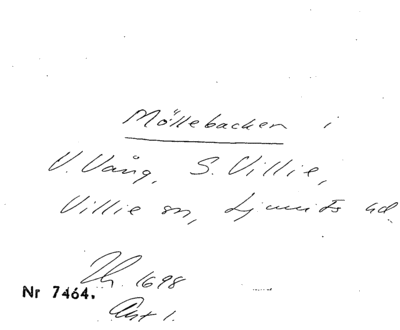 Möllebacken i
V. Vång, S. Villie,
Villie sn, Ljunits hd
1698
Nr 7464.
Akt 1.